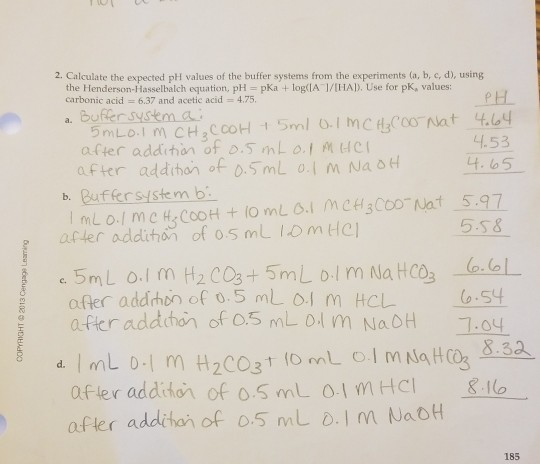 2. Calculate the expected pH values of the buffer systems from the experiments (a, b, c, d), using
the Henderson-Hasselbalch equation, pH = pKa + log([A⁻]/[HA]). Use for pKₐ values:
carbonic acid = 6.37 and acetic acid = 4.75.
PH
a. Buffer system a:
5mL 0.1 M CH₃COOH + 5ml 0.1 M CH₃COO⁻Na+ 4.64
after addition of 0.5 mL 0.1 M HCl 4.53
after addition of 0.5mL 0.1 M NaOH 4.65
b. Buffer system b:
1 mL 0.1 M CH₃COOH + 10 mL 0.1 M CH₃COO⁻Na+ 5.97
after addition of 0.5 mL 1.0 M HCl 5.58
c. 5mL 0.1 M H₂CO₃ + 5mL 0.1 M NaHCO₃ 6.61
after addition of 0.5 mL 0.1 M HCL 6.54
after addition of 0.5 mL 0.1 M NaOH 7.04
d. 1 mL 0.1 M H₂CO₃ + 10 mL 0.1 M NaHCO₃ 8.32
after addition of 0.5 mL 0.1 M HCl 8.16
after addition of 0.5 mL 0.1 M NaOH
COPYRIGHT © 2013 Cengage Learning
185